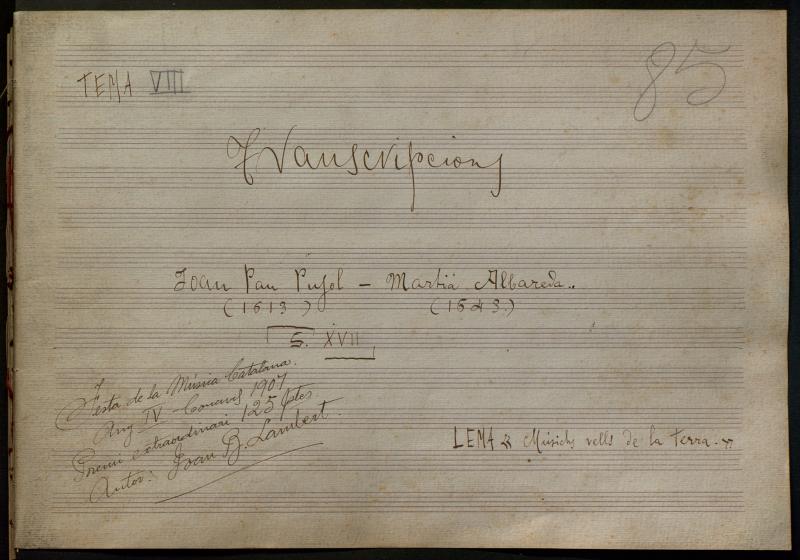 TEMA VIII
85
Transcripcions
Joan Pau Pujol - Martiä Albareda..
(1613) (1643.)
S. XVII
Festa de la Música Catalana.
Any IV - Concurs 1907
Premi extraordinari 125 ptes.
Autor: Joan B. Lambert.
LEMA Músichs vells de la terra.